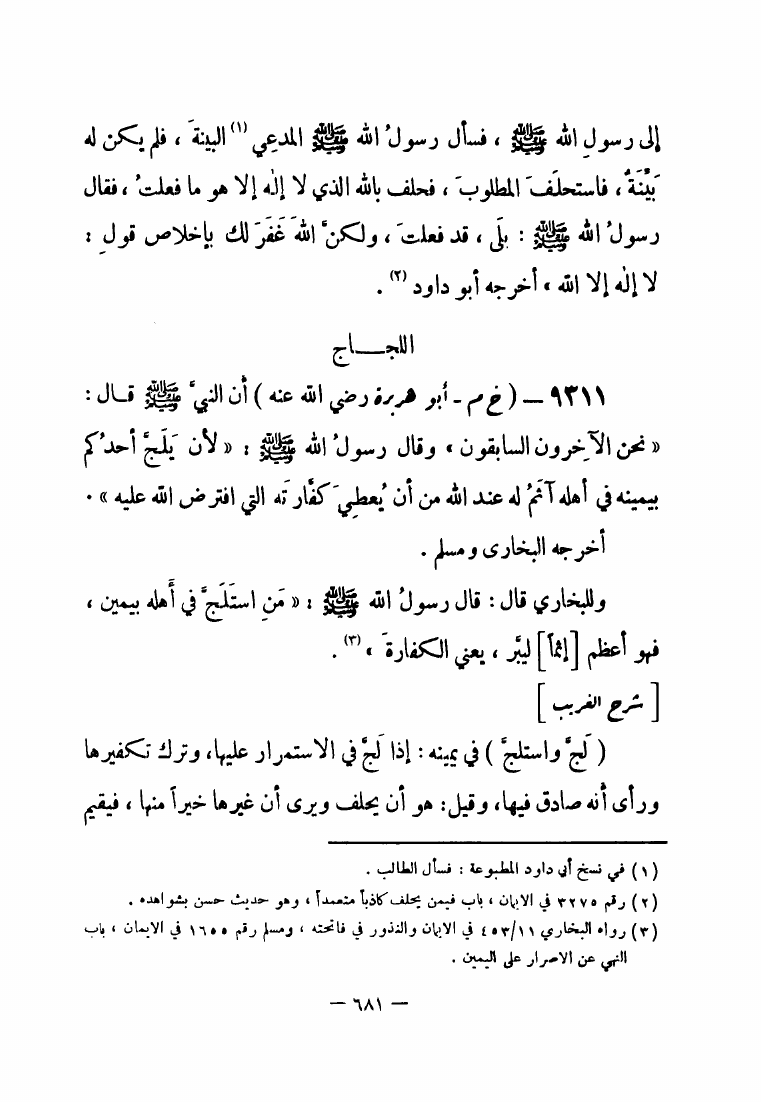 إلى رسولِ الله ﷺ ، فسأل رسولُ الله ﷺ المدعِي (١) البينةَ ، فلم يكن له
بَيِّنَةٌ ، فاستحلَفَ المطلوبَ ، فحلف بالله الذي لا إلٰه إلا هو ما فعلتُ ، فقال
رسولُ الله ﷺ : بَلَى ، قد فعلتَ ، ولكنَّ اللهَ غَفَرَ لك بإخلاص قولِ :
لا إلٰه إلا الله » أخرجه أبو داود (٢) .
اللجـــاج
٩٣١١ – ( خ م - أبو هريرة رضي الله عنه ) أن النبيَّ ﷺ قـال :
« نحن الآخِرون السابقون » وقال رسولُ الله ﷺ : « لأن يَلَجَّ أحدُكم
بيمينه في أهله آثَمُ له عند الله من أن يُعطِيَ كفَّارَته التي افترض الله عليه » .
أخرجه البخارى ومسلم .
وللبخاري قال : قال رسولُ الله ﷺ : « مَنِ استَلَجَّ في أَهله بيمين ،
فهو أعظم [إثماً] ليبَّر ، يعني الكفارةَ » (٣) .
[ شرح الغريب ]
( لَجَّ واستلجَّ ) في يمينه : إذا لَجَّ في الاستمرار عليها، وترك تكفيرها
ورأى أنه صادق فيها، وقيل : هو أن يحلف ويرى أن غيرها خيراً منها ، فيقيم
(١) في نسخ أبي داود المطبوعة : فسأل الطالب .
(٢) رقم ٣٢٧٥ في الايمان ، باب فيمن يحلف كاذباً متعمداً ، وهو حديث حسن بشواهده .
(٣) رواه البخاري ٤٥٣/١١ في الايمان والنذور في فاتحته ، ومسلم رقم ١٦٥٥ في الايمان ، باب
النهي عن الاصرار على اليمين .
– ٦٨١ –